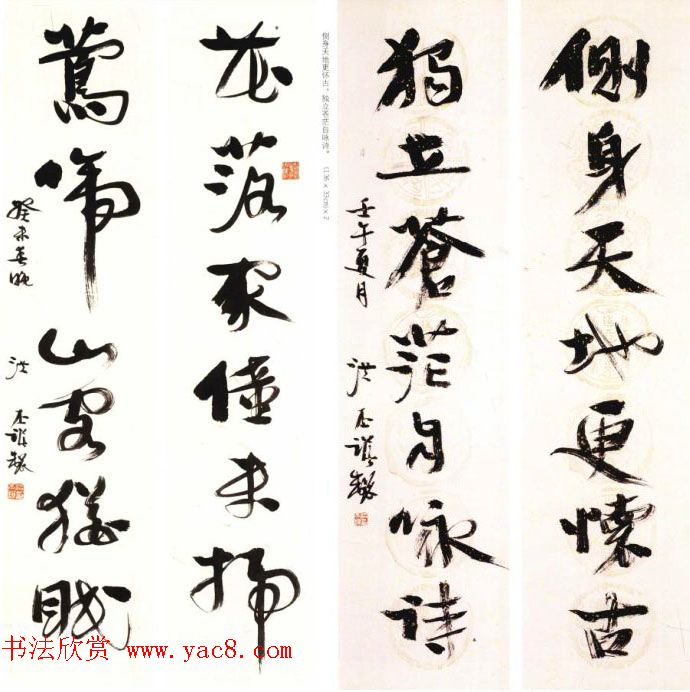 側身天地更懷古
獨立蒼茫自咏詩
壬午夏月 洪丕謨
侧身天地更怀古,独立苍茫自咏诗。 (136×33cm)×2
花落家僮未掃
鶯啼山客猶眠
癸未春晚 洪丕謨
书法欣赏 www.yac8.com